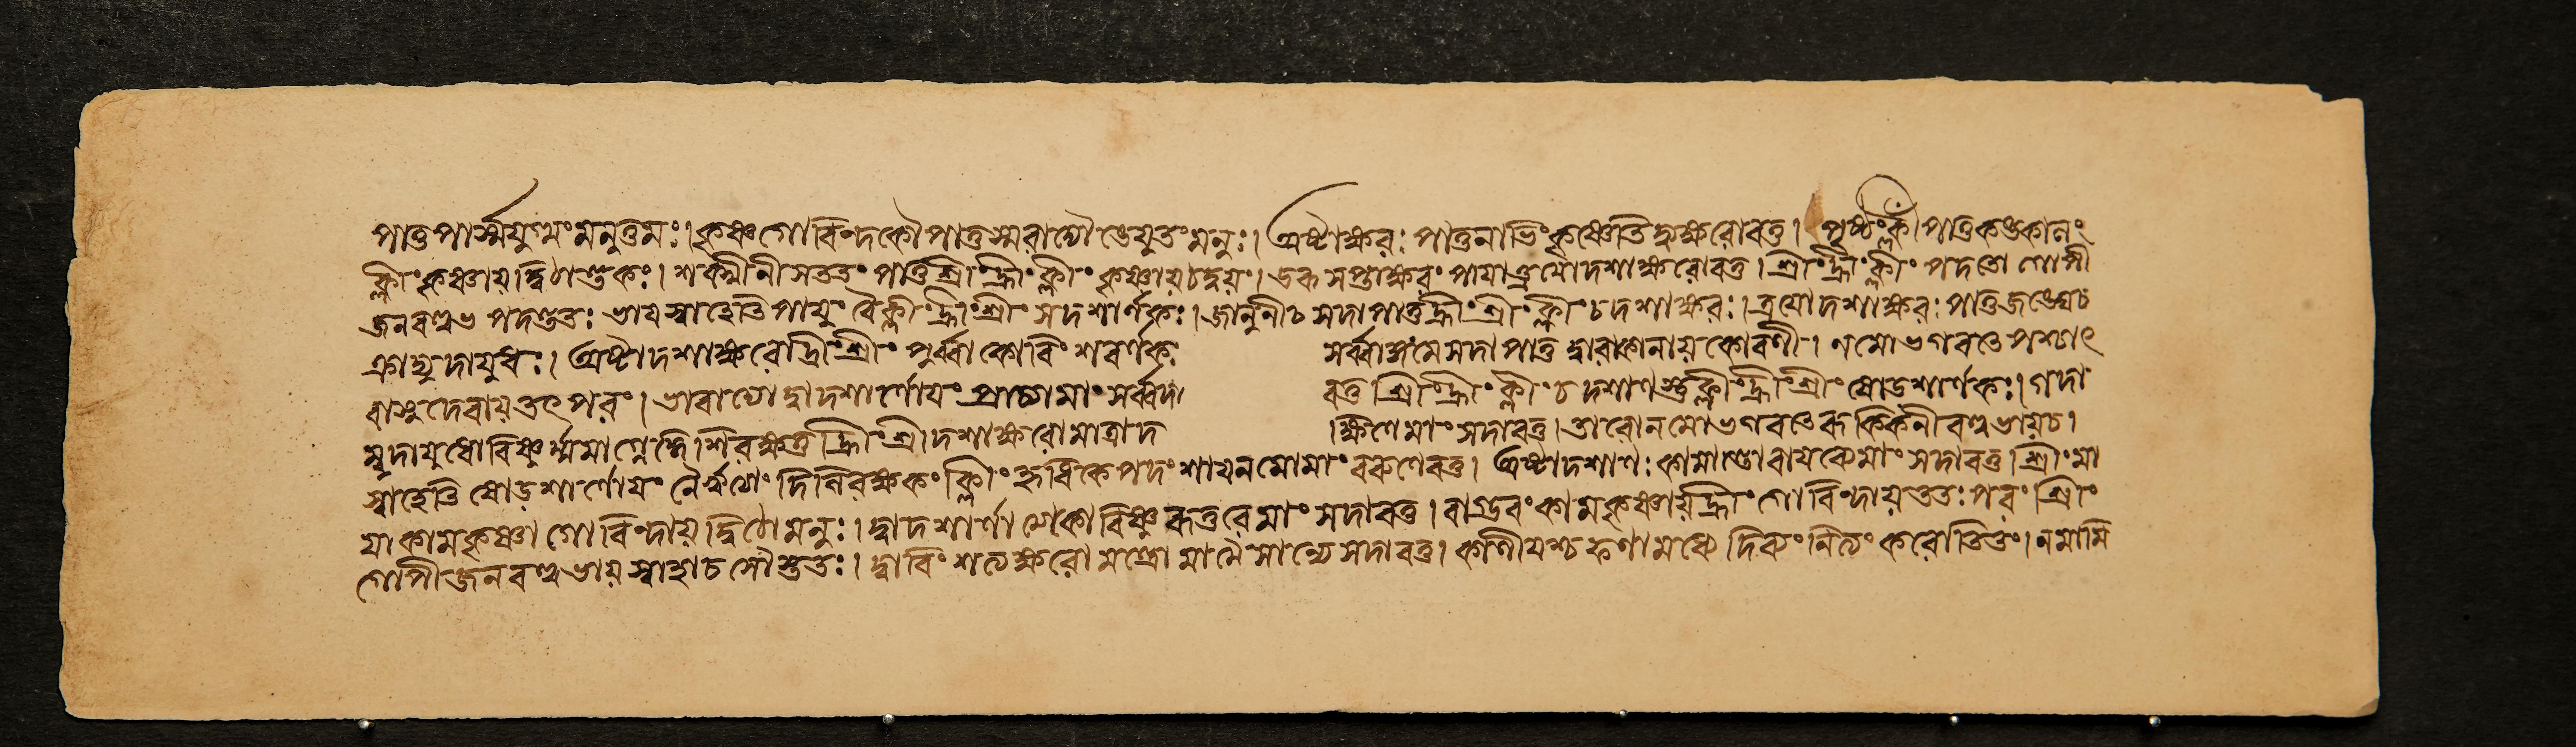 পাতু পার্স্মযুগ্মং মনুত্তমঃ। কৃষ্ণগোবিন্দকৌ পাতু স্মরাদ্যৌ ঙেযুতং মনুঃ। অষ্টাক্ষরঃ পাতু নাভিং কৃষ্ণেতি দ্ব্যক্ষরোবতু। পৃষ্ঠং ক্লীং পাতু
ক্লীং কৃষ্ণায় দ্বিঠাণ্ডকঃ। শক্মীনী সততং পাতু শ্রীং হ্রীং ক্লীং কৃষ্ণায় ঠদ্বয়ং। সপ্তাক্ষরং পায়া ত্রয়োদশাক্ষরোবতু। শ্রীং হ্রীং ক্লীং পদতো গোপী
জনবল্লভ পদন্ততঃ ভায় স্বাহেতি পায়ুং বৈ ক্লীং হ্রীং শ্রীং সদশার্ণকঃ। জানুনী চ সদা পাতু হ্রীং শ্রীং ক্লীং চ দশাক্ষরঃ। ত্রয়োদশাক্ষরঃ পাতু জঙ্ঘে চ
অষ্টাদশাক্ষরো হ্রীং শ্রীং পুর্ব্বাকো বিংশবর্ণকঃ সর্ব্বাঙ্গং মে সদা পাতু দ্বারাকানায়কোবলী। নমো ভগবতে পশ্চাৎ
বাসুদেবায় তৎ পরং। তারাদ্যো দ্বাদশার্ণোয়ং প্রাচ্যাং মাং সর্ব্বদা বতু শ্রীং হ্রীং ক্লীং চ দশার্ণস্তু ক্লীং হ্রীং শ্রীং ষোড়শার্ণকঃ। গদা
মুদায়ুধো বিষ্ণুর্ম্মামাগ্নেদ্দিশি রক্ষতু হ্রীং শ্রী দশাক্ষরো মাত্রা দ ক্ষিণে মাং সদাবতু। তারো নমো ভগবতে রুক্মিনী বল্লভায় চ।
স্বাহেতি ষোড়শার্ণোয়ং নৈর্ঋথ্যং দিশি রক্ষকং ক্লীং হৃষিকে পদং শায় নমো মাং বরুণেবতু। অষ্টাদশার্ণঃ কামান্তো বায়ব্যে মাং সদাবতু শ্রীং মা
য়া কাম কৃষ্ণা গোবিন্দায় দ্বিঠো মনুঃ। দ্বাদশার্ণাত্মকো বিষ্ণু রুত্তরে মাং সদাবতু। বাগ্ভবং কাম কৃষ্ণায় হ্রীং গোবিন্দায় ততঃ পরং শ্রীং
গোপীজনবল্লভায় স্বাহা চ সৌ স্ততঃ। দ্বাবিংশত্যক্ষরো মন্ত্রো মামৈসান্যে সদাবতু। কালীয়শ্চ ফণামধ্যে দিব্যং নিত্যং করোতি তং। নমামি